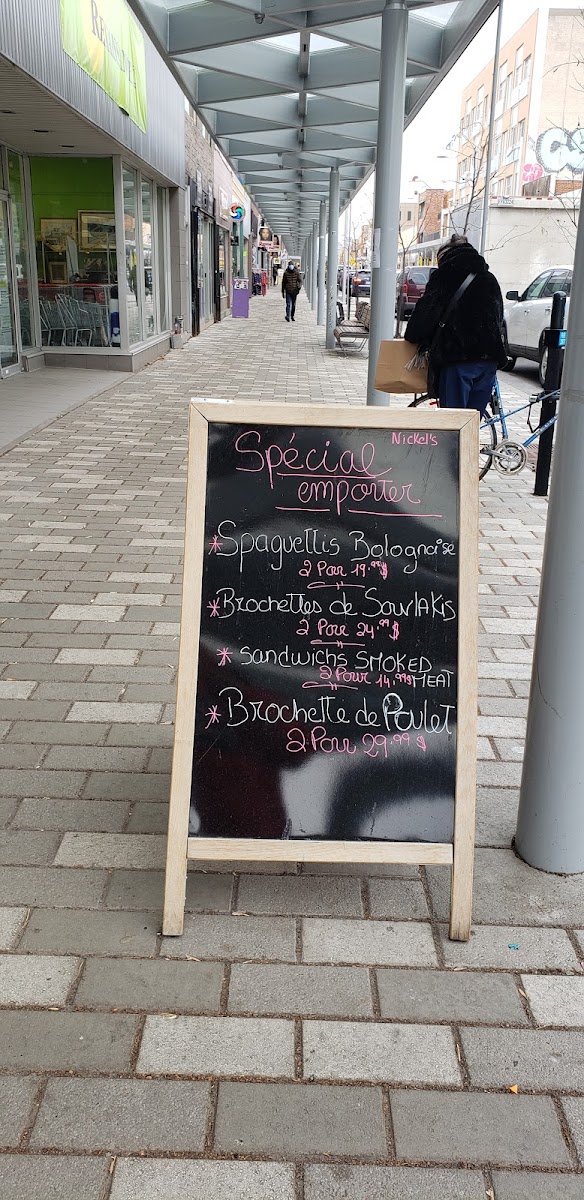 Nickel's
Spécial
emporter
*Spaguettis Bolognaise
2 Pour 19.99$
*Brochettes de Souvlakis
2 Pour 24.99$
* Sandwichs SMOKED
2 Pour 14.99$ MEAT
* Brochette de Poulet
2 Pour 29.99$